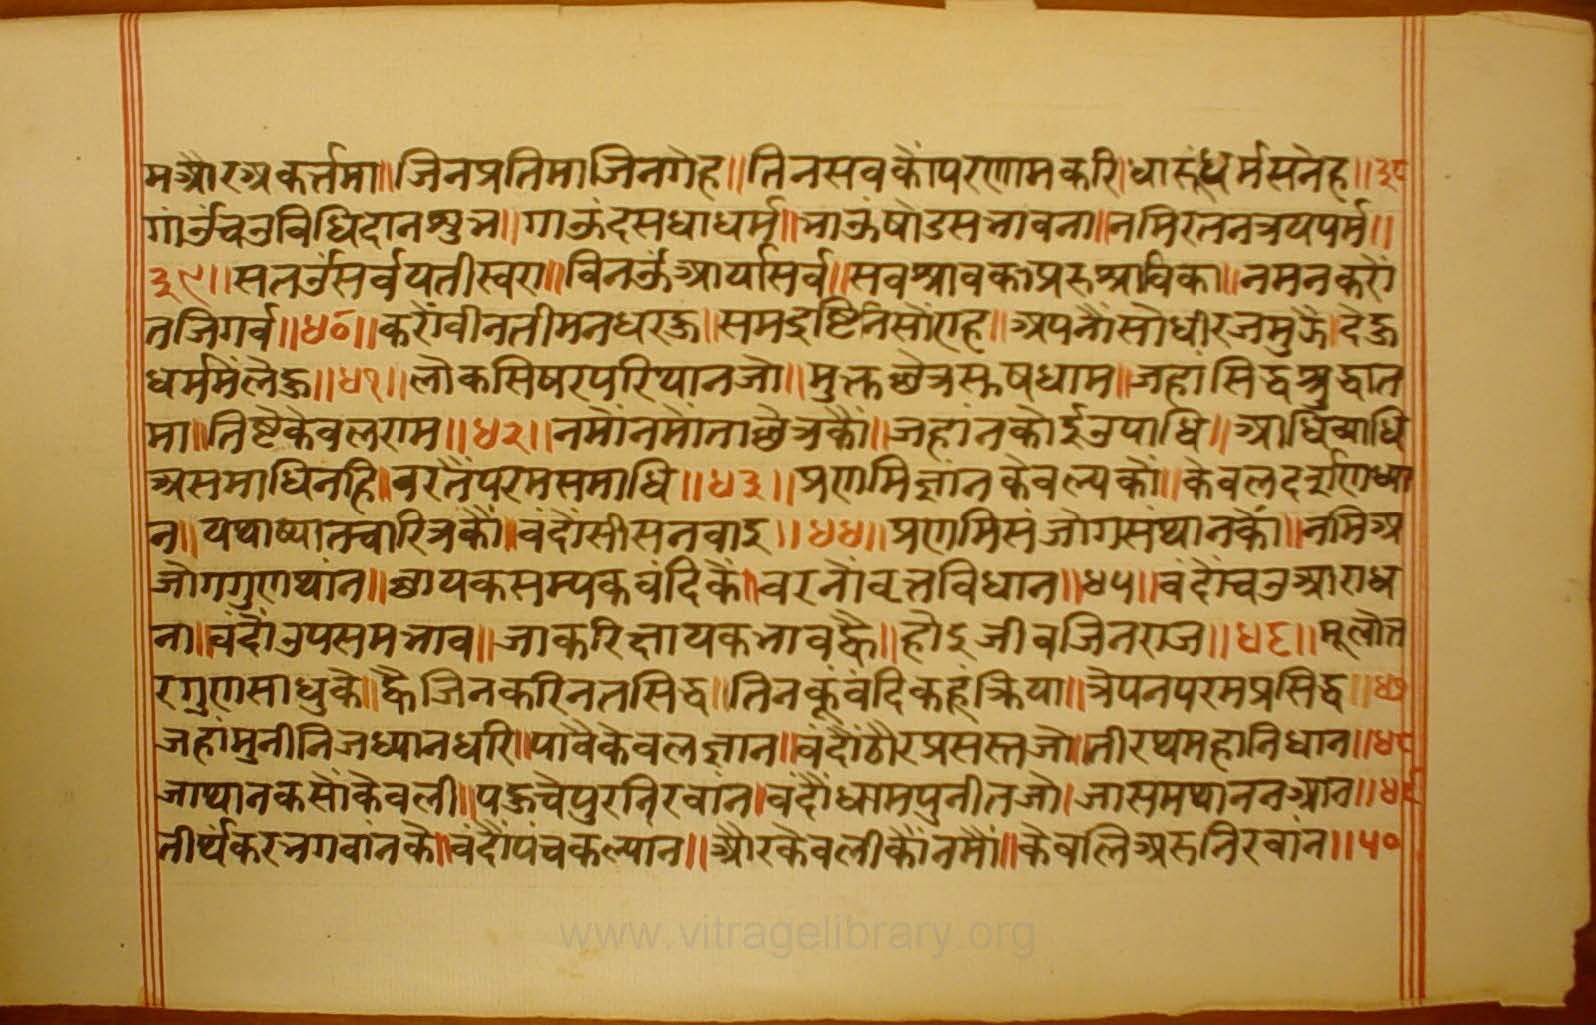 मऔरअकर्त्तमा॥जिनप्रतिमाजिनगेह॥तिनसबकौंपरणामकरि।धारूंधर्मसनेह॥३८
गांऊंचउविधिदानशुभ॥गाऊंदसधाधर्म॥भाऊंषोडसभावना॥नमिरतनत्रयपर्म॥
३९॥सतऊंसर्वयतीस्वरा॥विनऊंआर्यासर्व॥सबश्रावकाअरुश्राविका॥नमनकरौं
तजिगर्व॥४०॥करौंवीनतीमनधरकू॥समदृष्टिनिसौंएह॥अपनौंसौधीरजमुझै।देहु
धर्ममैंलेहु॥४१॥लोकसिषरपरिथानजो॥मुक्तछेत्रसुषधाम॥जहांसिद्धशुद्धात
मा॥तिष्टैकेवलराम॥४२॥नमौंनमौंताछेत्रकौं॥जहांनकोईउपाधि॥आधिव्याधि
असमाधिनहि॥बरतैंपरमसमाधि॥४३॥प्रणमिज्ञांनकेवल्यकौं॥केवलदर्शणध्या
न॥यथाष्यातचारित्रकौं॥वंदौंसीसनवाइ॥४४॥प्रणमिसंजोगसंथानकौं॥नमिअ
जोगगुणथांन॥छायकसम्यकवंदिकैं॥वरनौंवृत्तविधान॥४५॥वंदौंचउआराध
ना॥वंदौंउपसमभाव॥जाकरिक्षायकभावह्वै॥होइजीवजिनराज॥४६॥मूलोत्त
रगुणसाधुके॥ह्वैजिनकरिनतसिद्ध॥तिनकूंवंदिकहूंक्रिया॥त्रेपनपरमप्रसिद्ध॥४७
जहांमुनीनिजध्यानधरि॥पावैकेवलज्ञान॥वंदौंठौरप्रसस्तजो॥तीरथमहानिधान॥४८
जाथानकसौंकेवली॥पहुचैपुरनिरवांन॥वंदौंधामपुनीतजो।जासमथाननआन॥४९
तीर्थंकरभगवांनके॥वंदौंपंचकल्यान॥औरकेवलीकौंनमौं॥केवलिअरुनिरवांन॥५०
www.vitragelibrary.org